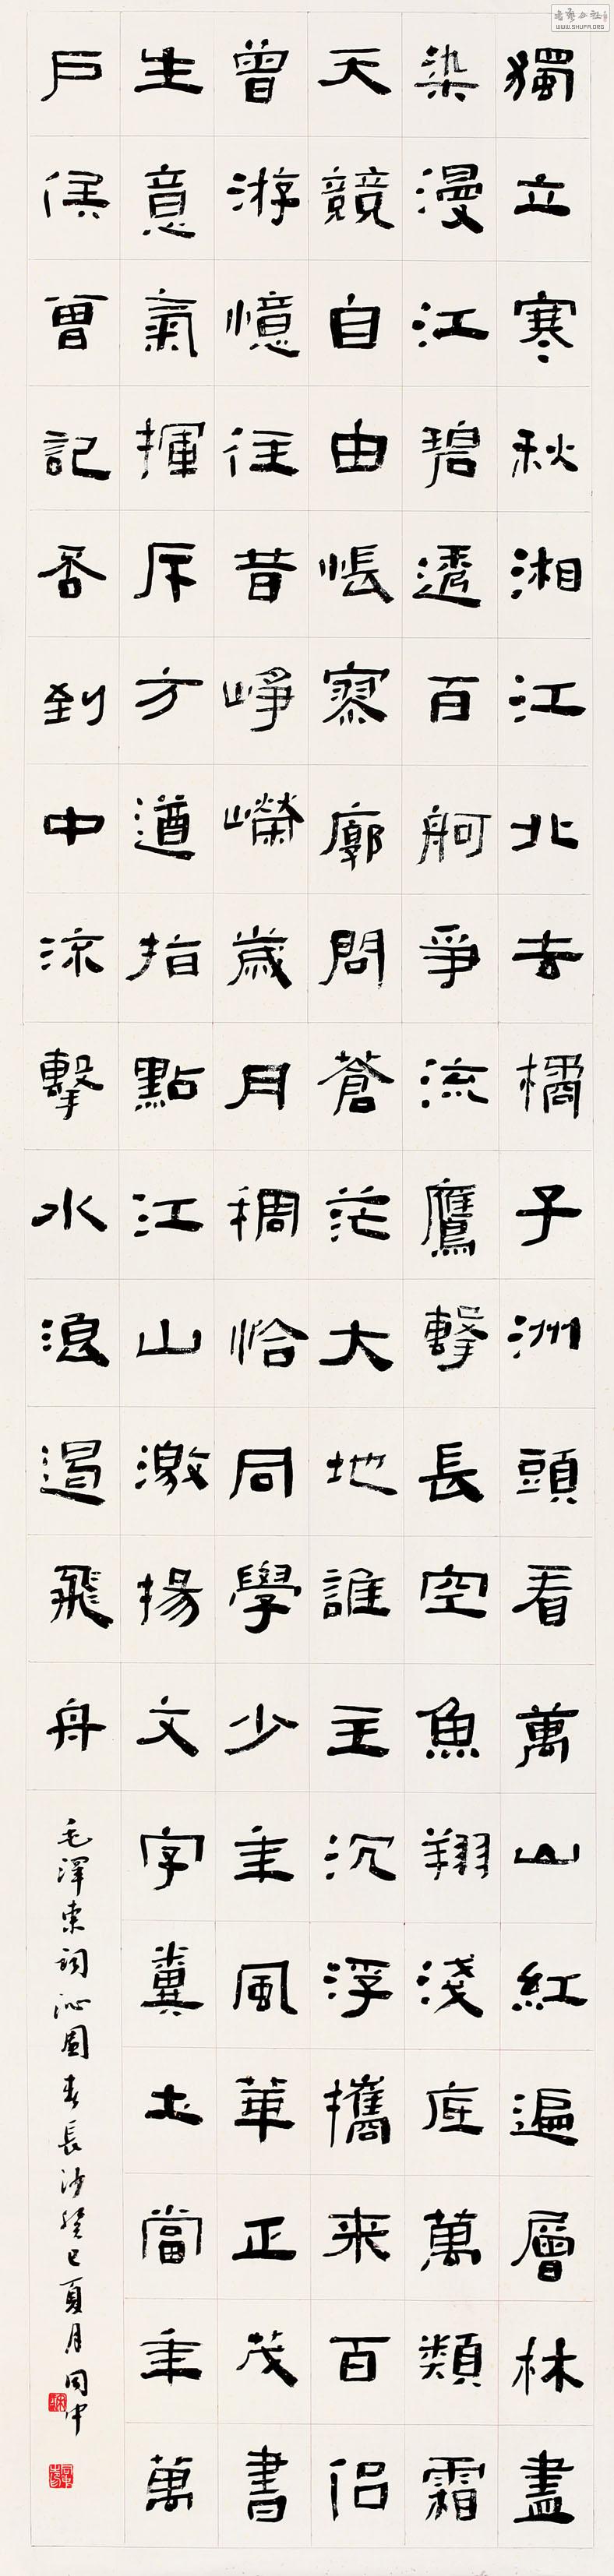 獨立寒秋湘江北去橘子洲頭看萬山紅遍層林盡
染漫江碧透百舸爭流鷹擊長空魚翔淺底萬類霜
天競自由悵寥廓問蒼茫大地誰主沉浮攜来百侶
曾游憶往昔崢嶸歲月稠恰同學少年風華正茂書
生意氣揮斥方遒指點江山激揚文字糞土當年萬
户侯曾記否到中流擊水浪遏飛舟
毛澤東詞沁園春長沙癸巳夏月同中
WWW.SHUFA.ORG